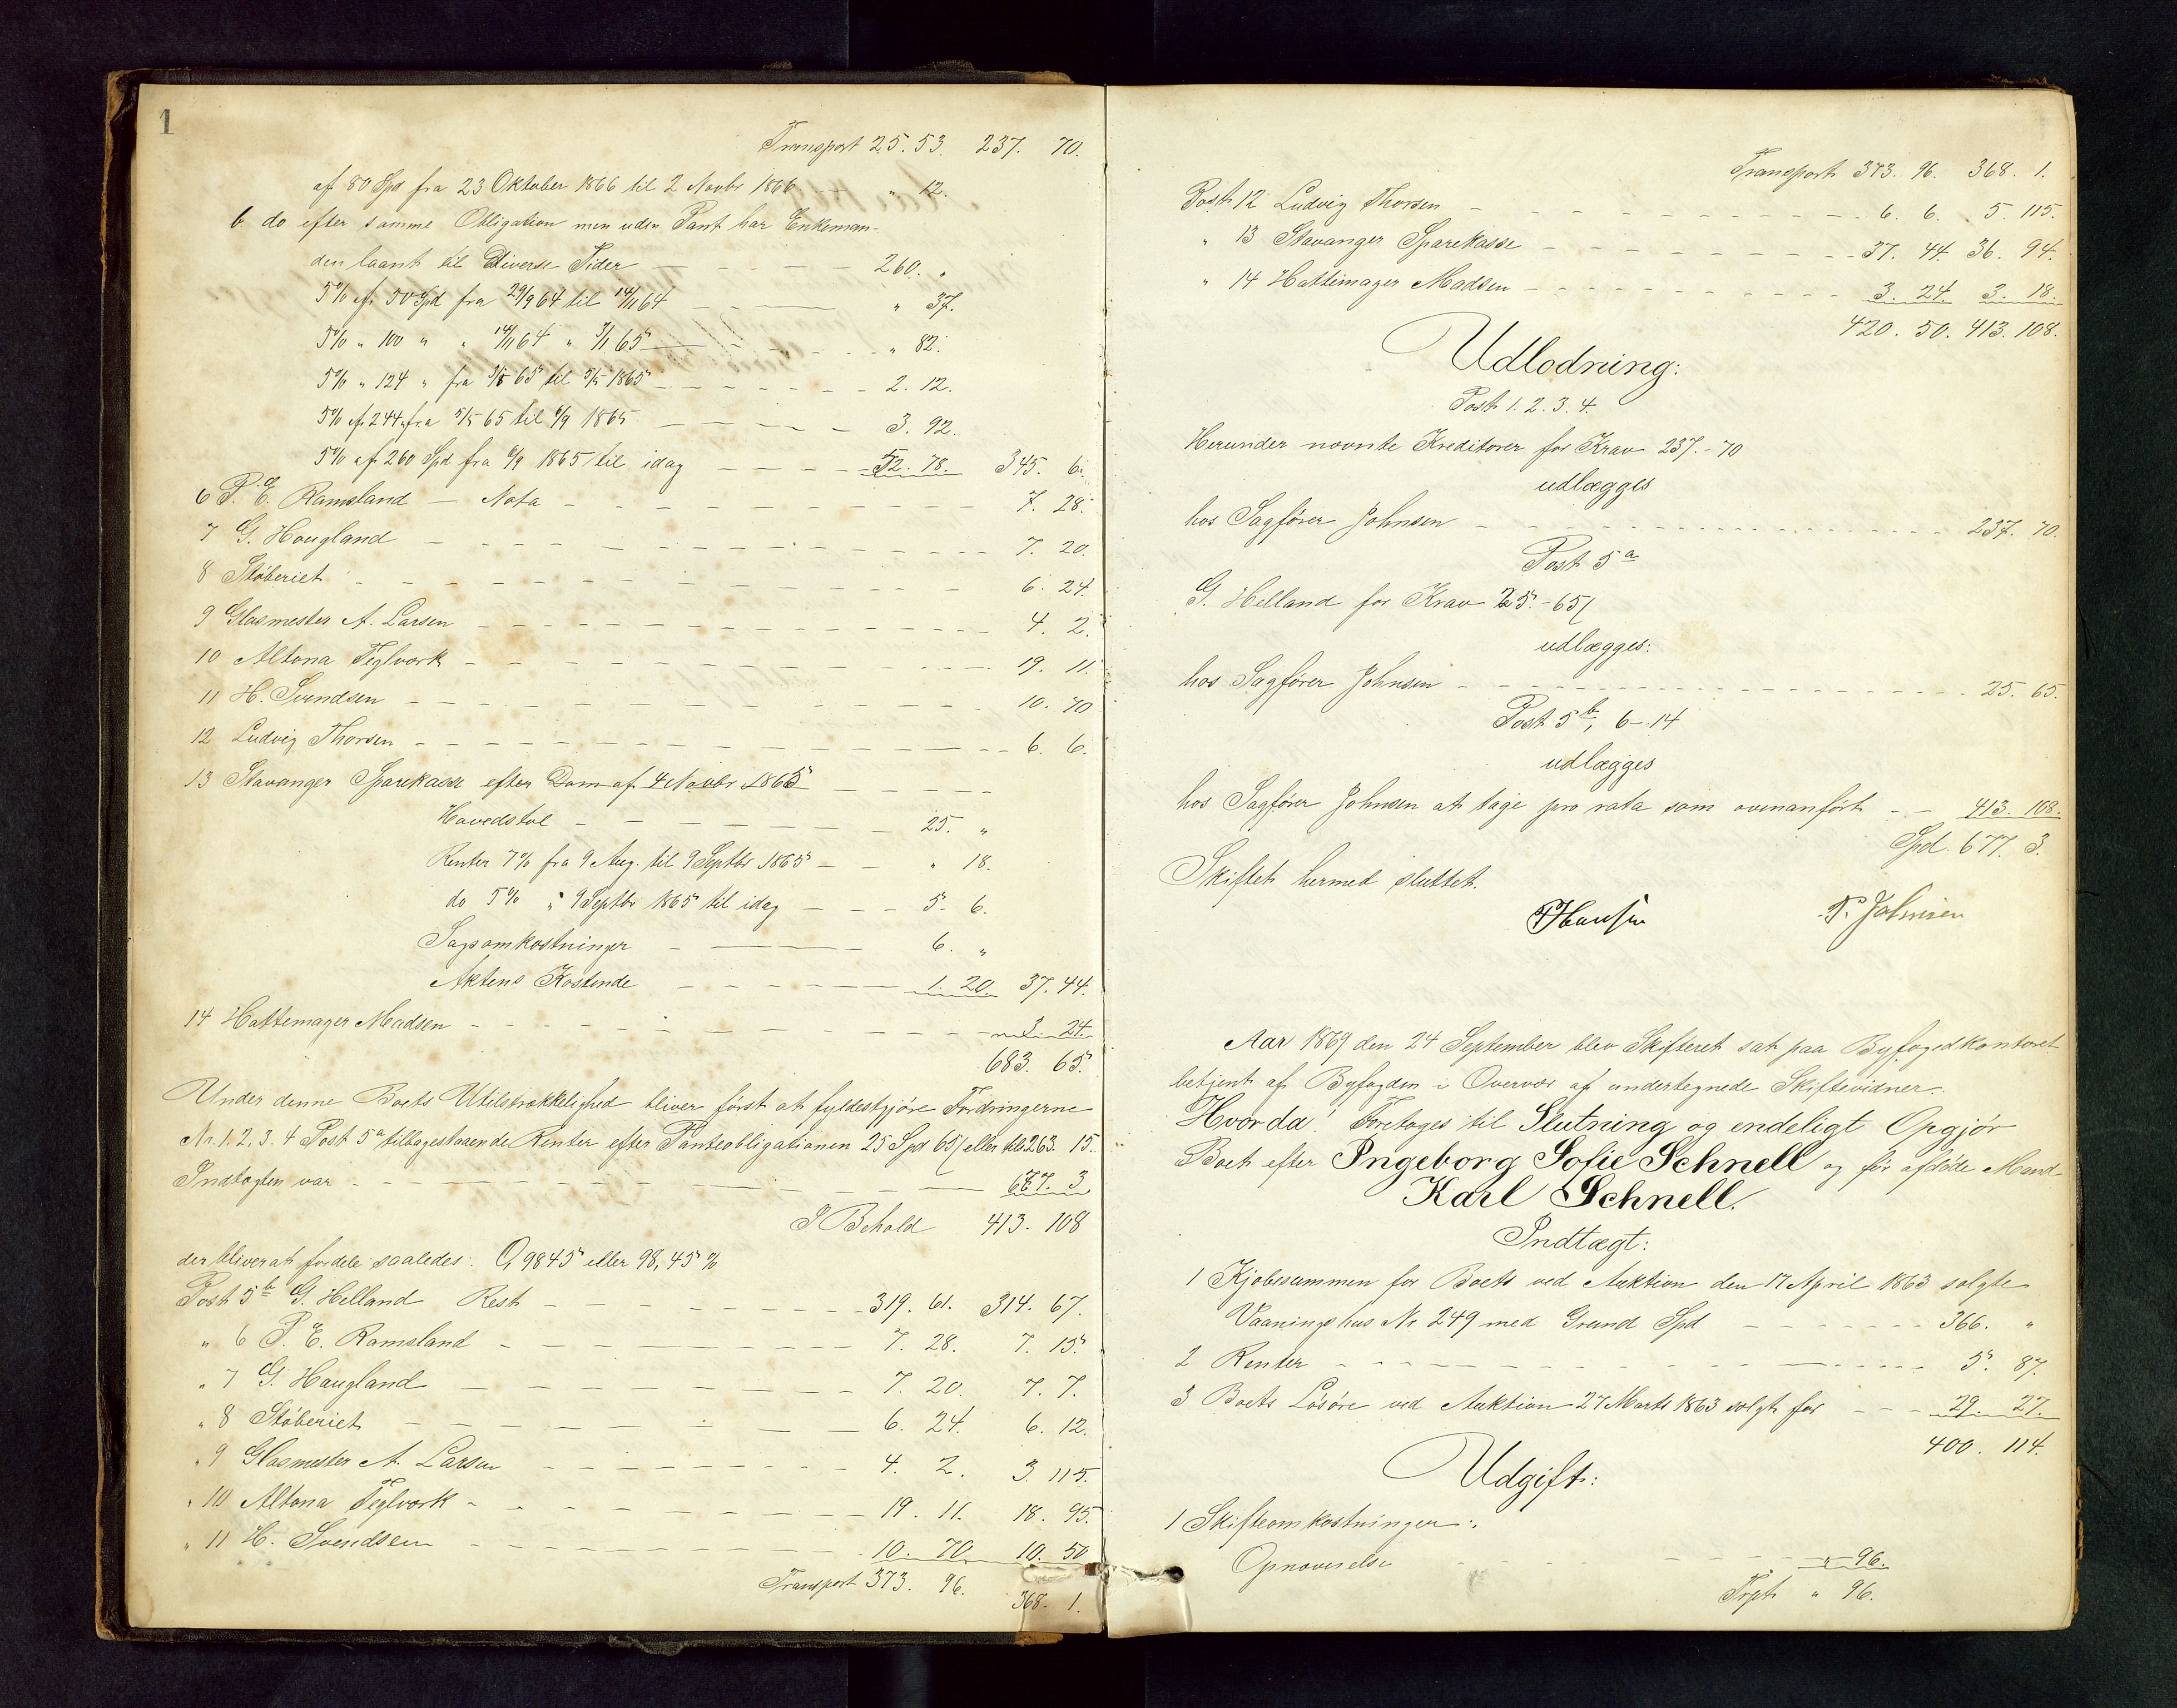 1
Transport 25. 53. 237. 70.
af 80 Spd fra 23 Oktober 1866 til 2 Novbr 1866 " 12.
b. do efter samme Obligation men uden Pant har Enkeman-
den laant til Diverse Tider 260. "
5% af 50 Spd fra 29/9 64 til 14/11 64 " 37.
5% " 100 " " 14/11 64 " 3/1 65 " 82.
5% " 124 " fra 3/1 65 til 5/5 1865 2. 12.
5% af 244 fra 5/5 65 til 6/9 1865 3. 92.
5% af 260 Spd fra 6/9 1865 til idag 52. 78. 345. 6.
6 P. E. Ramsland - Nota 7. 28.
7 G. Hougland 7. 20.
8 Støberiet 6. 24.
9 Glasmester A. Larsen 4. 2.
10 Altona Teglværk 19. 11.
11 H. Svendsen 10. 70
12 Ludvig Thorsen 6. 6.
13 Stavanger Sparekasse efter Dom af 4 Novbr 1865
Hovedstol 25. "
Renter 7% fra 9 Aug. til 9 Septbr 1865 " 18.
do 5% " 9 Septbr 1865 til idag 5. 6.
Sagsomkostninger 6. "
Aktens Kostende 1. 20. 37. 44.
14 Hattemager Madsen 3. 24.
683. 65.
Under denne Boets Utilstrækkelighed bliver først at fyldestgjøre Fordringerne
Nr. 1. 2. 3. 4 Post 5a tilbagestaaende Renter efter Panteobligationen 25 Spd 65/ eller tils 263. 15.
Indtægten var 677. 3
I Behold 413. 108
der bliver at fordele saaledes: 0,9845 eller 98,45 %
Post 5b G. Helland Rest 319. 61. 314. 67.
" 6 P. E. Ramsland 7. 28. 7. 15.
" 7 G. Haugland 7. 20. 7. 7.
" 8 Støberiet 6. 24. 6. 12.
" 9 Glasmester A. Larsen 4. 2. 3. 115.
" 10 Altona Teglværk 19. 11. 18. 95.
" 11 H. Svendsen 10. 70. 10. 50
Transport 373. 96. 368. 1.
Transport 373. 96. 368. 1.
Post 12 Ludvig Thorsen 6. 6. 5. 115.
" 13 Stavanger Sparekasse 37. 44. 36. 94.
" 14 Hattemager Madsen 3. 24. 3. 18.
420. 50. 413. 108.
Udlodning:
Post 1. 2. 3. 4.
Herunder nævnte Kreditorer for Krav 237.-70
udlægges
hos Sagfører Johnsen 237. 70.
Post 5a
G. Helland for Krav 25.-65/
udlægges:
hos Sagfører Johnsen 25. 65.
Post 5b, 6-14
udlægges
hos Sagfører Johnsen at tage pro rata som ovenanført 413. 108.
Spd. 677. 3.
Skiftet hermed sluttet.
Hansen P. Johnsen
Aar 1869 den 24 September blev Skifteret sat paa Byfogedkontoret
betjent af Byfogden i Overvær af undertegnede Skiftevidner.
Hvor da! Foretoges til Slutning og endeligt Opgjør
Boet efter Ingeborg Sofie Schnell og før afdøde Mand
Karl Schnell.
Indtægt:
1 Kjøbesummen for Boets ved Auktion den 17 April 1863 solgte
Vaaningshus Nr 249 med Grund Spd 366. "
2 Renter 5. 87.
3 Boets Løsøre ved Auktion 27 Marts 1863 solgt for 29. 27.
400. 114.
Udgift:
1 Skifteomkostninger:
Opnævnelse " 96.
Trpt " 96.